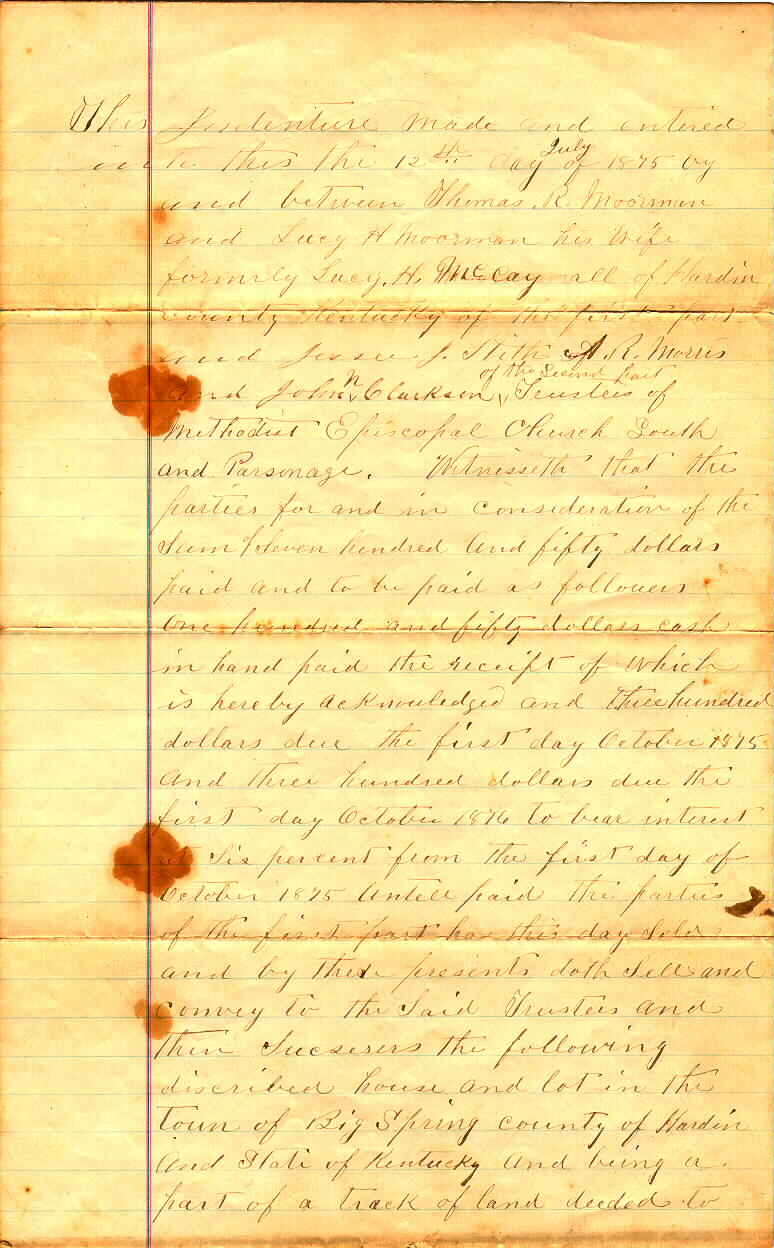 This Indenture made and entered
in to this the 12th day of July 1875 by
and between Thomas. R. Moorman
and Lucy H Moorman his Wife
formrly Lucy. H. McCay all of Hardin
county Kentucky of the first part
and Jessee J. Stith A. R. Morris
of the Second part
and John N Clarkson, Trustees of
Methodist Episcopal Church South
and Parsonage. Witnesseth that the
parties for and in consideration of the
Sum Seven hundred and fifty dollars
paid and to be paid as followers
One hundred and fifty dollars cash
in hand paid the receipt of which
is hereby acknowledged and three hundred
dollars due the first day October 1875
And three hundred dollars due the
first day October 1876 to bear interest
at Sis percent from the first day of
October 1875 Untell paid the parties
of the first part has this day Sold
and by these presents doth Sell and
convey to the Said Trustees and
their Sucserers the following
discribed house and lot in the
Toun of Big Spring county of Hardin
And State of Kentucky And being a
part of a track of land deeded to